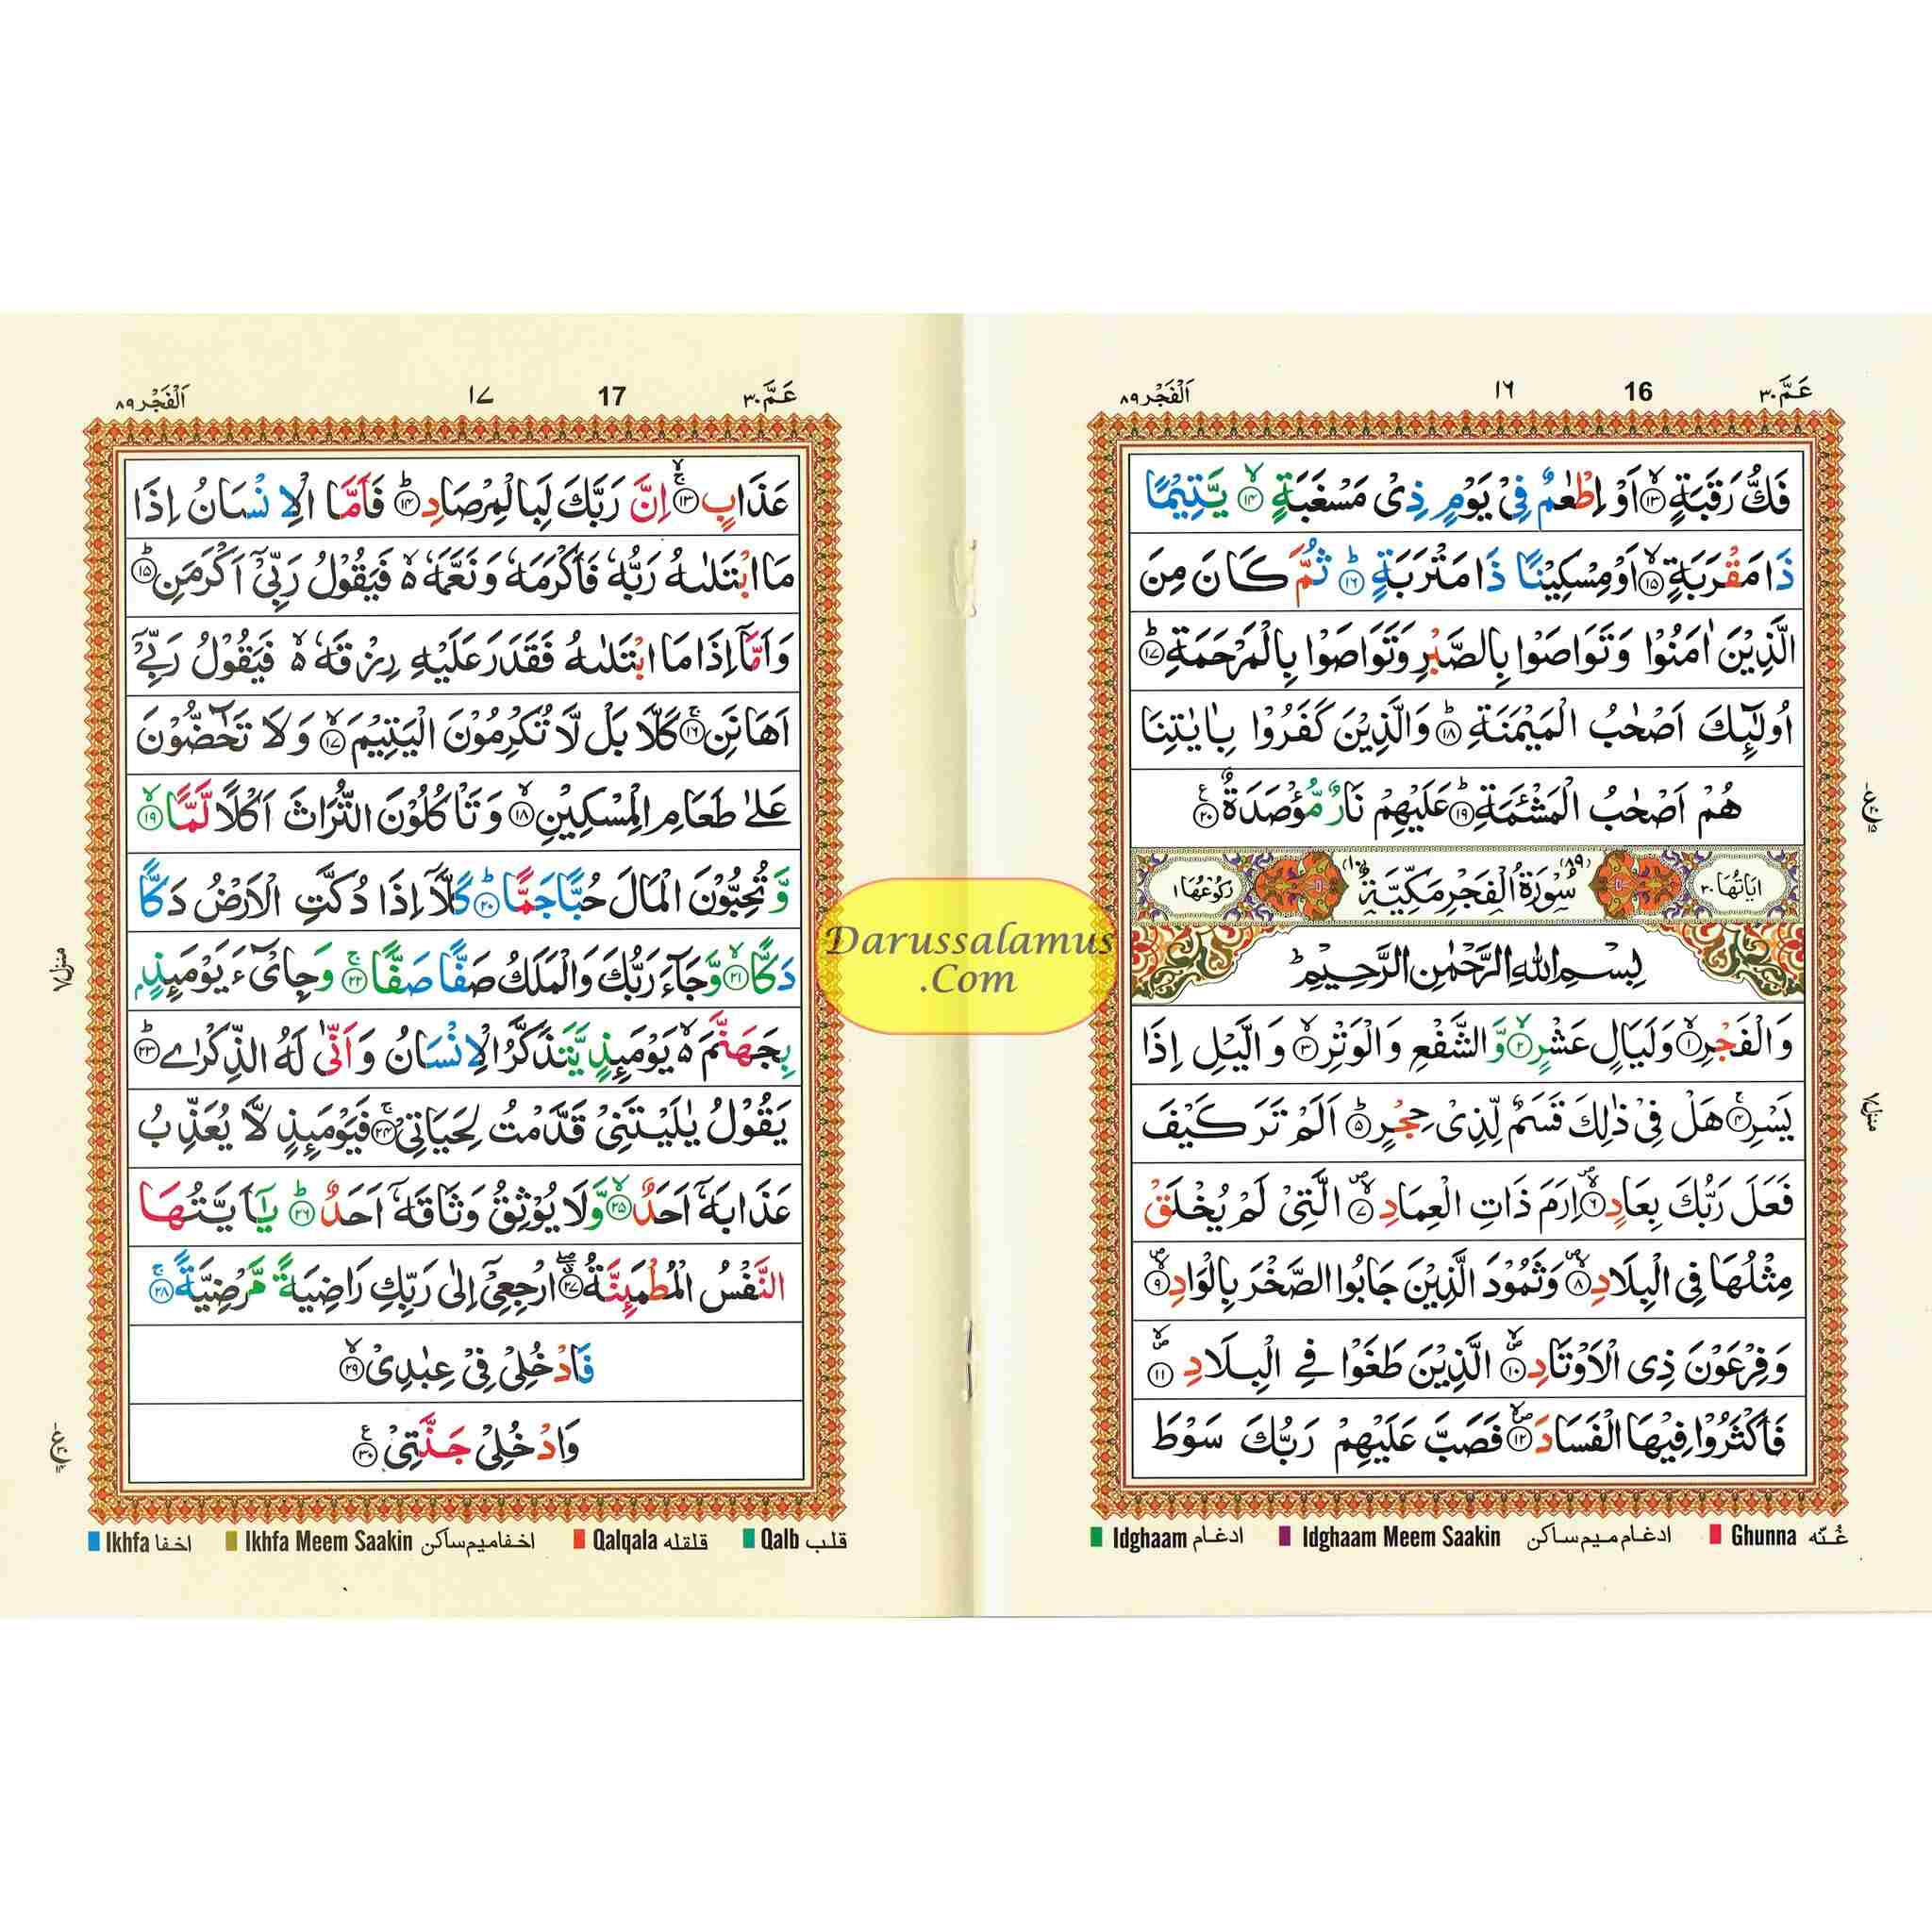 عَمَّ ٣٠
16
١٦
اَلْفَجْر ٨٩
فَكُّ رَقَبَةٍ ۙ﴿١٣﴾ اَوْ اِطْعٰمٌ فِيْ يَوْمٍ ذِيْ مَسْغَبَةٍ ۙ﴿١٤﴾ يَّتِيْمًا
ذَا مَقْرَبَةٍ ۙ﴿١٥﴾ اَوْ مِسْكِيْنًا ذَا مَتْرَبَةٍ ؕ﴿١٦﴾ ثُمَّ كَانَ مِنَ
الَّذِيْنَ اٰمَنُوْا وَتَوَاصَوْا بِالصَّبْرِ وَتَوَاصَوْا بِالْمَرْحَمَةِ ؕ﴿١٧﴾
اُولٰٓئِكَ اَصْحٰبُ الْمَيْمَنَةِ ؕ﴿١٨﴾ وَالَّذِيْنَ كَفَرُوْا بِاٰيٰتِنَا
هُمْ اَصْحٰبُ الْمَشْـَٔمَةِ ؕ﴿١٩﴾ عَلَيْهِمْ نَارٌ مُّؤْصَدَةٌ ۧ﴿٢٠﴾
اٰيَاتُهَا ٣٠ (٨٩) سُوْرَةُ الْفَجْرِ مَكِّيَّةٌ (١٠) رُكُوْعُهَا ١
بِسْمِ اللّٰهِ الرَّحْمٰنِ الرَّحِيْمِ
وَالْفَجْرِ ۙ﴿١﴾ وَلَيَالٍ عَشْرٍ ۙ﴿٢﴾ وَّالشَّفْعِ وَالْوَتْرِ ۙ﴿٣﴾ وَالَّيْلِ اِذَا
يَسْرِ ۚ﴿٤﴾ هَلْ فِيْ ذٰلِكَ قَسَمٌ لِّذِيْ حِجْرٍ ؕ﴿٥﴾ اَلَمْ تَرَ كَيْفَ
فَعَلَ رَبُّكَ بِعَادٍ ۙ﴿٦﴾ اِرَمَ ذَاتِ الْعِمَادِ ۙ﴿٧﴾ الَّتِيْ لَمْ يُخْلَقْ
مِثْلُهَا فِي الْبِلَادِ ۙ﴿٨﴾ وَثَمُوْدَ الَّذِيْنَ جَابُوا الصَّخْرَ بِالْوَادِ ۙ﴿٩﴾
وَفِرْعَوْنَ ذِي الْاَوْتَادِ ۙ﴿١٠﴾ الَّذِيْنَ طَغَوْا فِي الْبِلَادِ ۙ﴿١١﴾
فَاَكْثَرُوْا فِيْهَا الْفَسَادَ ۙ﴿١٢﴾ فَصَبَّ عَلَيْهِمْ رَبُّكَ سَوْطَ
منزل ٧
Idghaam ادغام Idghaam Meem Saakin ادغام میم ساکن Ghunna غُنّه
عَمَّ ٣٠
17
١٧
اَلْفَجْر ٨٩
عَذَابٍ ۚ﴿١٣﴾ اِنَّ رَبَّكَ لَبِالْمِرْصَادِ ؕ﴿١٤﴾ فَاَمَّا الْاِنْسَانُ اِذَا
مَا ابْتَلٰىهُ رَبُّهٗ فَاَكْرَمَهٗ وَنَعَّمَهٗ ۙ فَيَقُوْلُ رَبِّيْٓ اَكْرَمَنِ ؕ﴿١٥﴾
وَاَمَّآ اِذَا مَا ابْتَلٰىهُ فَقَدَرَ عَلَيْهِ رِزْقَهٗ ۙ فَيَقُوْلُ رَبِّيْٓ
اَهَانَنِ ۚ﴿١٦﴾ كَلَّا بَلْ لَّا تُكْرِمُوْنَ الْيَتِيْمَ ۙ﴿١٧﴾ وَلَا تَحٰٓضُّوْنَ
عَلٰى طَعَامِ الْمِسْكِيْنِ ۙ﴿١٨﴾ وَتَاْكُلُوْنَ التُّرَاثَ اَكْلًا لَّمًّا ۙ﴿١٩﴾
وَّتُحِبُّوْنَ الْمَالَ حُبًّا جَمًّا ؕ﴿٢٠﴾ كَلَّآ اِذَا دُكَّتِ الْاَرْضُ دَكًّا
دَكًّا ۙ﴿٢١﴾ وَّجَآءَ رَبُّكَ وَالْمَلَكُ صَفًّا صَفًّا ۚ﴿٢٢﴾ وَجِايْٓءَ يَوْمَئِذٍۭ
بِجَهَنَّمَ ۙ يَوْمَئِذٍ يَّتَذَكَّرُ الْاِنْسَانُ وَاَنّٰى لَهُ الذِّكْرٰى ؕ﴿٢٣﴾
يَقُوْلُ يٰلَيْتَنِيْ قَدَّمْتُ لِحَيَاتِيْ ۚ﴿٢٤﴾ فَيَوْمَئِذٍ لَّا يُعَذِّبُ
عَذَابَهٗٓ اَحَدٌ ۙ﴿٢٥﴾ وَّلَا يُوْثِقُ وَثَاقَهٗٓ اَحَدٌ ؕ﴿٢٦﴾ يٰٓاَيَّتُهَا
النَّفْسُ الْمُطْمَئِنَّةُ ۙ﴿٢٧﴾ ارْجِعِيْٓ اِلٰى رَبِّكِ رَاضِيَةً مَّرْضِيَّةً ۚ﴿٢٨﴾
فَادْخُلِيْ فِيْ عِبٰدِيْ ۙ﴿٢٩﴾
وَادْخُلِيْ جَنَّتِيْ ۧ﴿٣٠﴾
منزل ٧
Ikhfa اخفا Ikhfa Meem Saakin اخفا میم ساکن Qalqala قلقله Qalb قلب
Darussalamus
.Com